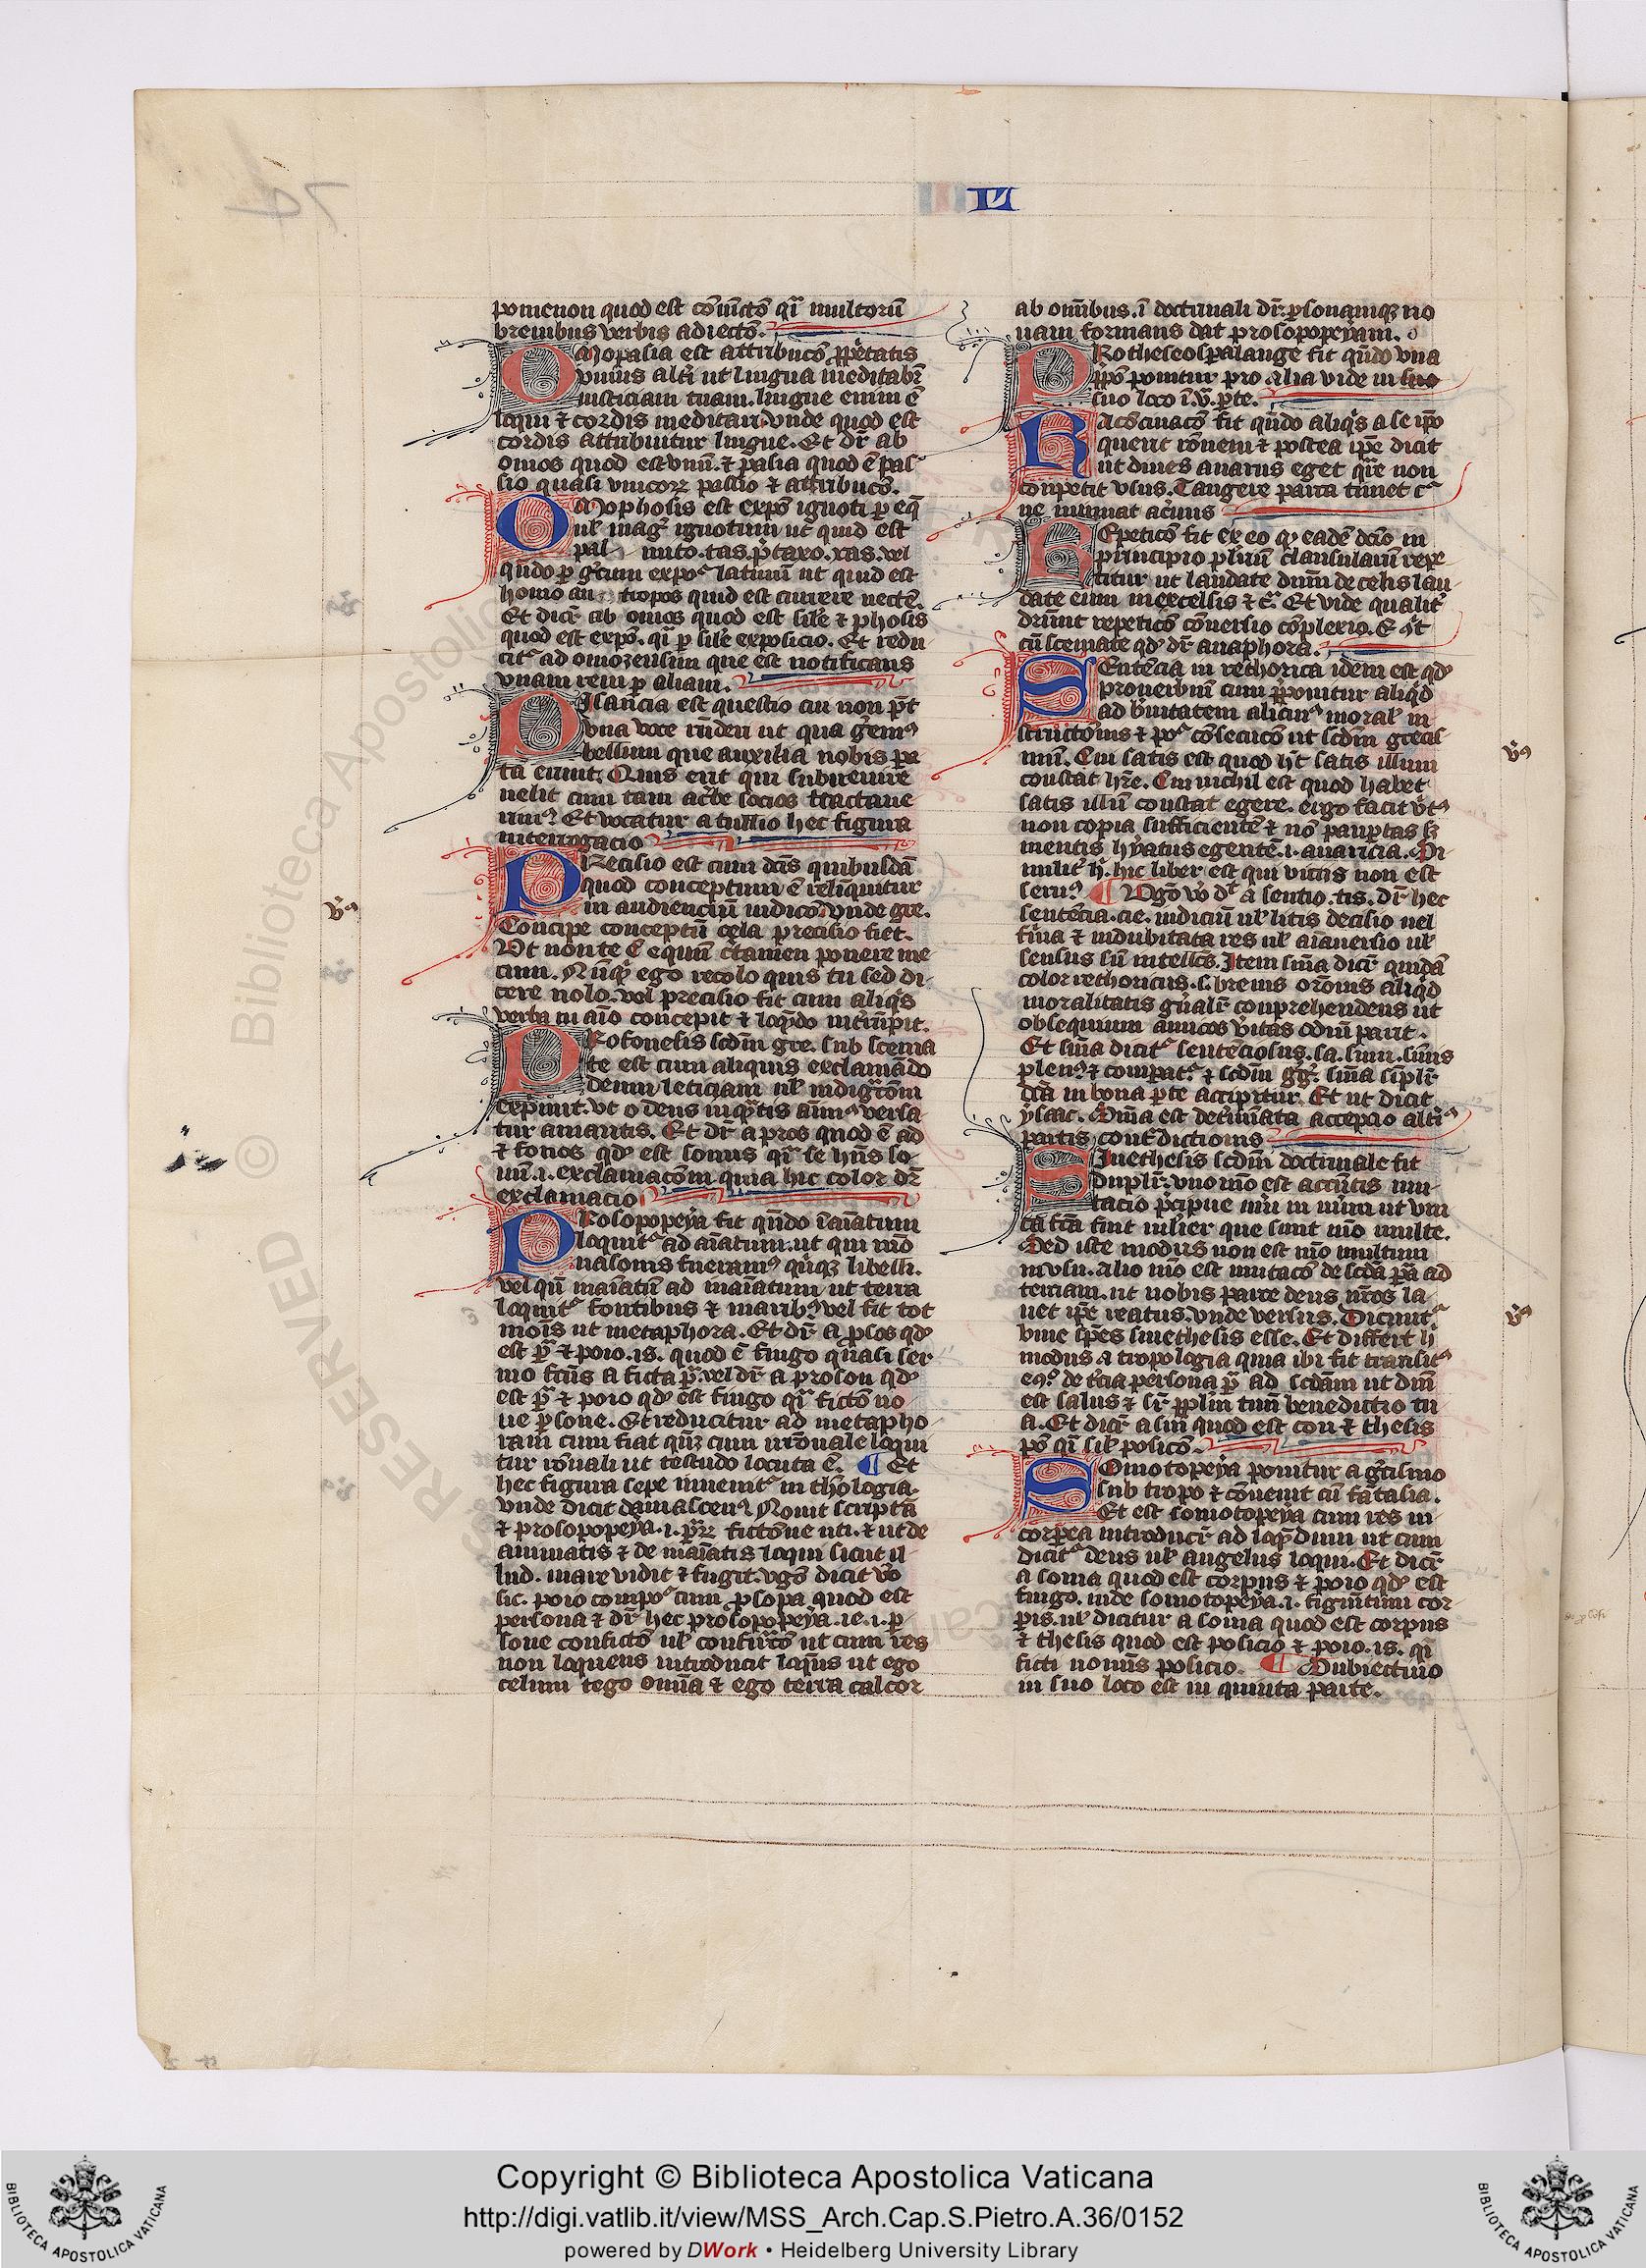 L
pomenon quod est cōiūctō q̄i multorū
breuibus verbis adiectō.
OMopasia est attribucō ꝓpetatis
vnius alti ut lingua meditabr̄
iusticiam tuam. lingue enim ē
loqui ⁊ cordis meditari. vnde quod est
cordis attribuitur lingue. Et dr̄ ab
omos quod est vnū. ⁊ pasia quod ē pas
sio quasi vnicorꝝ passio ⁊ attribucō.
OMopholis est expō ignoti ꝑ eq̄
ul' mag' ignotum ut quid est
pal muto. tas. p̄taxo. xas. vel
qn̄do ꝑ ḡcum expoꝰ latinū ut quid est
homo an tropos quid est currere
Et dicr̄ ab omos quod est sile ⁊ pholis
quod est expō. q̄i ꝑ sile exposicio. Et redu
citꝰ ad omozeusim que est notificans
vnam rem ꝑ aliam.
PIsancia est questio cui non p̄t
vna voce rn̄deri ut qua gem'
bellum que auxilia nobis pa
ta erunt. Quis erit qui subuenire
uelit cum tam acͬbe socios tractaue
rim'. Et vocatur a tullio hec figura
interrogacio
PRecisio est cum dc̄is quibusdā
quod conceptum ē relinquitur
in audienciū iudicō. vnde gre.
Concipe conceptū cela precisio fiet.
Ut non te ē equū c̄tamen ponere me
cum. Nūqͣ ego recolo quis tu sed di
cere nolo. vel precisio fit cum aliq's
verba in aīo concepit ⁊ loqn̄do int̄rūpit.
PRofonesis scdm̄ gre. sub scema
te est cum aliquis exclamādo
demū leticiam ul' indigc̄om
exp̄mit. ut o deus īiq̄tis aīm' versa
tur amantis. Et dr̄ a pros quod ē ad
⁊ fonos qd' est sonus q̄i se hn̄s so
nū. i. exclamacōm quia hic color dr̄
exclamacio
PRosopopeya fit qn̄do īaīatum
loquitꝰ ad aīatum. ut qui mō
nasonis fueramꝰ quīqꝫ libelli.
vel qn̄ inaīatū ad inaīatum ut terra
loquitꝰ fontibus ⁊ maribꝰ. vel fit tot
mois ut metaphora. Et dr̄ a ꝓsos qd'
est p̄ ⁊ poio. is. quod ē fingo quasi ser
mo fcūs a ficta p̄. vel dr̄ a proson qd'
est p̄ ⁊ poio qd' est fingo q̄i fictō no
ue ꝑsone. Et reducitur ad metapho
ram cum fiat qn̄qꝫ cum irrōnale loqui
tur rōnali ut testudo locuta ē. ¶ Et
hec figura sepe inuenitꝰ in thologia.
vnde dicit damascenꝰ. Nouit scriptā
⁊ prosopopeya. i. p̄rꝝ fictōne uti. ⁊ ut de
animatis ⁊ de inaīatis loqui sicut il
lud. mare vidit ⁊ fugit. vgō dicit v̄o
sic. poio compoꝰ cum ꝓsopa quod est
persona ⁊ dr̄ hec prosopopeya. ie. i. ꝑ
sone confictō ul' ut cum res
non loquens introducit loqn̄s ut ego
celum tego omīa ⁊ ego terra calcor
ab omībus. ī doctrinali dr̄. ꝑsonamqꝫ no
uam formans dat prosopopeyam.
PRotheseos palange fit qn̄do vna
ꝓpō ponitur pro alia vide in suo
suo loco ī. v̄. pte.
RAcōcinacō fit qn̄do aliq's a se ip̄o
querit rōnem ⁊ postea ip̄e dicit
ut diues auarus eget qͬe non
conpetit vsus. Tangere parta timet cͬ
ne minuat acͬuus
REpeticō fit ex eo qꝫ eadē dc̄io in
principio pl'riū clausularū repe
titur ut laudate dn̄m de celis lau
date eum in excelsis ⁊ cͬ. Et vide qualitͬ
drn̄t repeticō cōuersio cōplexio.
cū scemate qd' dr̄ anaphora.
SEntēcia in rethorica idem est qd'
prouerbiū cum p̄ponitur aliqd
ad b'uitatem alicuiꝰ moral' in
structōnis ⁊ poꝰ cōsecucō ut scdm̄ grecis
mū. Cui satis est quod h't satis illum
constat hr̄e. Cui nichil est quod habet
satis illū constat egere. ergo facit v̄tꝰ
non copia sufficientē ⁊ nō pauptas sꝫ
mentis hyatus egentē. i. auaricia. Si
militͬ h̄. hic liber est qui vitiis non est
seruꝰ. ¶ Vgō v̄o dt̄ a sentio. tis. dr̄ hec
sentēcia. cie. iudiciū ul' litis decisio uel
firma ⁊ indubitata res ul' aīaduersio ul'
sensus siū intellcs. Item sn̄ia dicr̄ quidā
color rethoricus. s. breuis orōnis aliqd
moralitatis gn̄alr̄ conprehendens ut
obsequium amicos v̄itas odiū parit.
Et sn̄ia dicitꝰ sentēciosus. sa. sum. sn̄iis
plenꝰ. ⁊ compatꝰ. ⁊ scdm̄ gg'. sn̄ia siplr̄
dcā in bona pte accipitur. Et ut dicit
ysaac. Sn̄ia est det̄mīata accepcio altīꝰ
partis cont̄dictionis
SInethesis scdm̄ doctrinale fit
duplr̄. vno mō est accn̄tis mu
tacio p̄cipue nūi in nūm ut vni
ta fcā sint mulier que sunt mō multe.
Sed iste modus non est mō multum
in vsu. alio mō est mutacō de scdā pā ad
terciam. ut nobis parce deus nr̄os la
uet ip̄e reatus. vnde versus. Dicuntꝰ
bine sp̄es sinethesis esse. Et differt h̄
modus a tropologia quia ibi fit transitꝰ
eqꝰ de t̄cia persona p̄ ad scdam ut dn̄i
est salus ⁊ sr̄ pp̄lm tuū benedictio tu
a. Et dicr̄ a sin quod est con ⁊ thesis
pō q̄i sil' posicō.
SOmotopeya ponitur a ḡcismo
sub tropo ⁊ cōuenit cū fātasia.
Et est somotopeya cum res in
corporea introducr̄ ad loqn̄dum ut cum
dicitꝰ deus ul' angelus loqui. Et dicr̄
a soma quod est corpus ⁊ poio qd' est
fingo. inde somotopeya. i. figmentum cor
poris. ul' dicitur a soma quod est corpus
⁊ thesis quod est posicio ⁊ poio. is. q̄i
ficti nominis posicio. ¶ Subiectiuo
in suo loco est in quinta parte.
© Biblioteca Apostolica Vaticana
RESERVED
Copyright © Biblioteca Apostolica Vaticana
http://digi.vatlib.it/view/MSS_Arch.Cap.S.Pietro.A.36/0152
powered by DWork • Heidelberg University Library
BIBLIOTECA APOSTOLICA VATICANA
BIBLIOTECA APOSTOLICA VATICANA